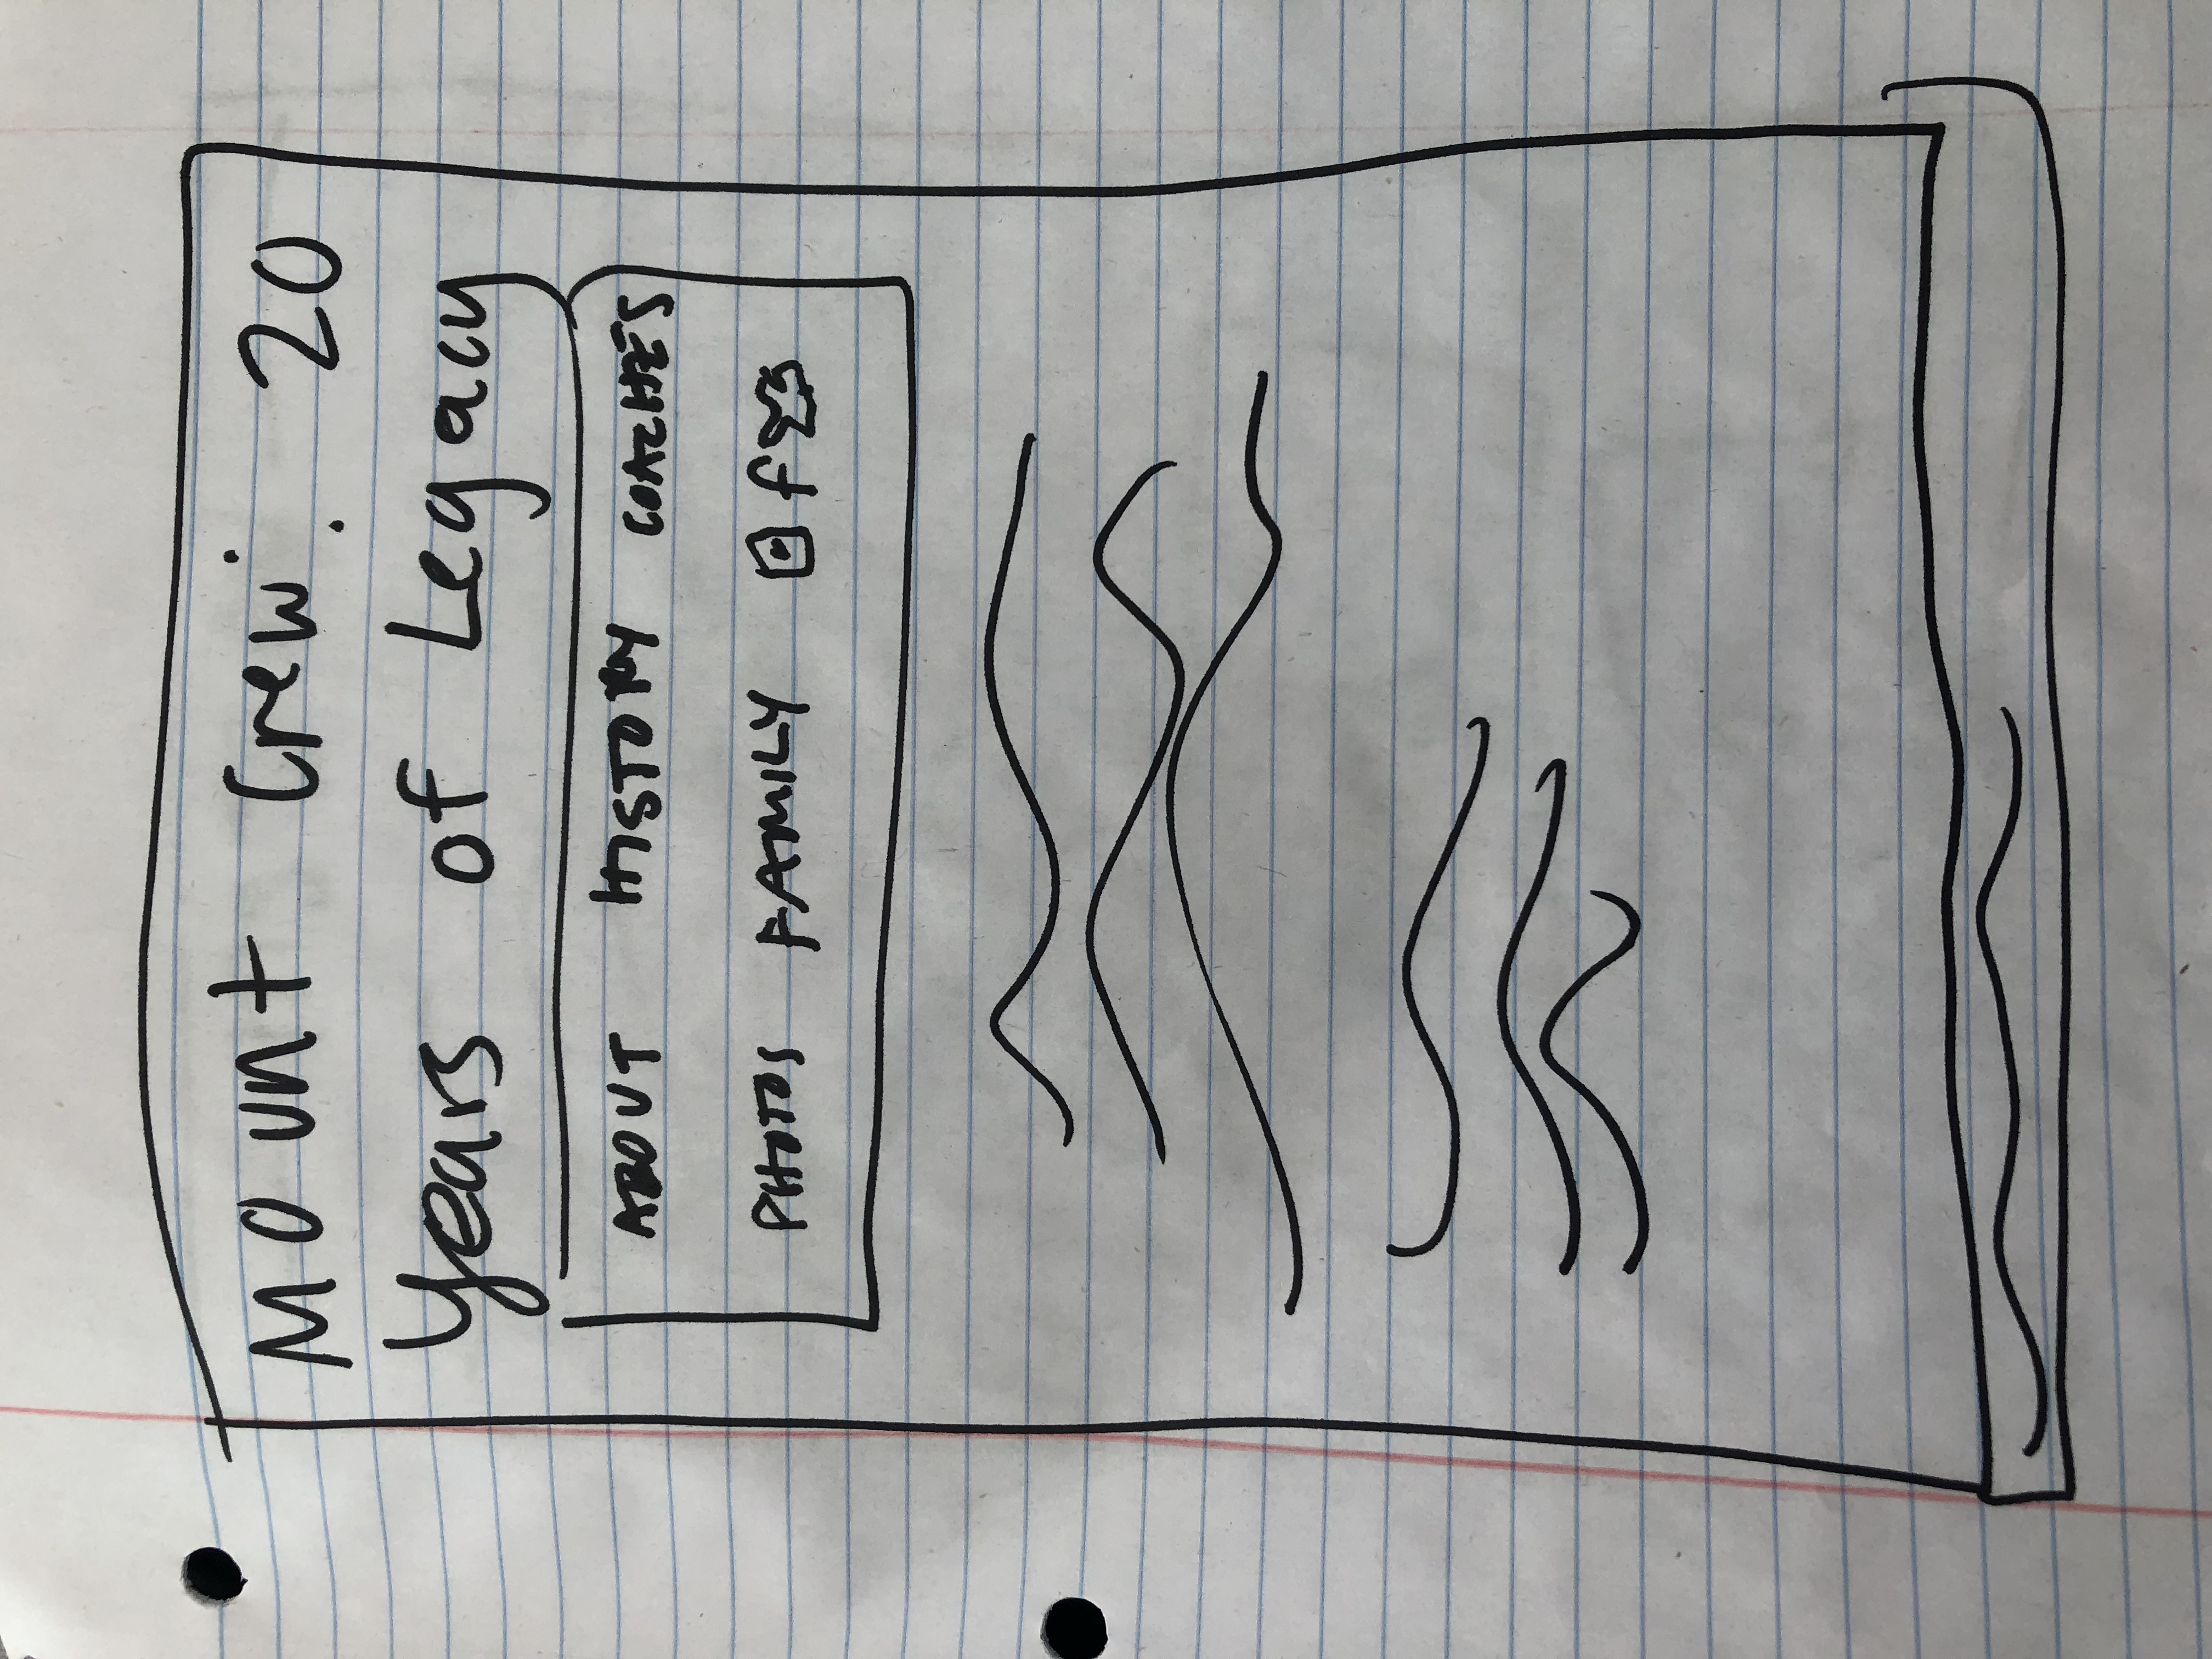 Mount Crew: 20
Years of Legacy
ABOUT HISTORY COACHES
PHOTOS FAMILY f